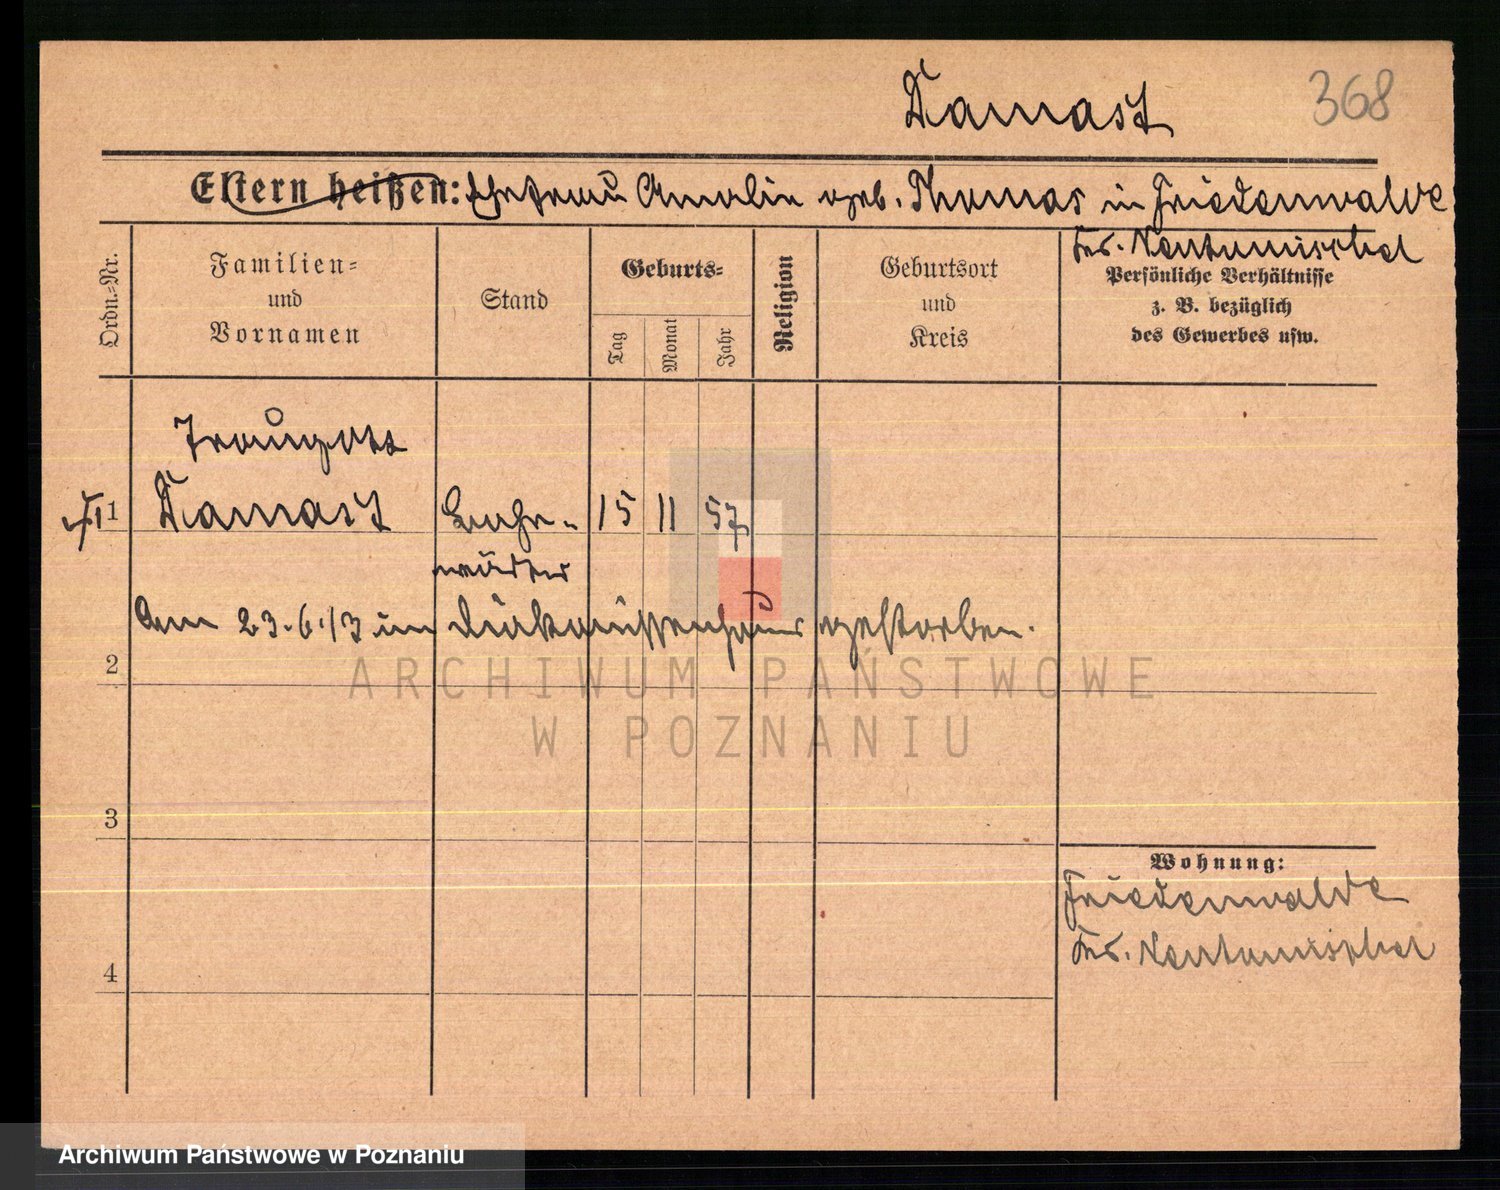 Damast 368
Eltern heißen: Ehefrau Amalie geb. Thomas in Friedenwalde
Krs. Neutomischel
Ordn.-Nr.
Familien-
und
Vornamen
Stand
Geburts-
Tag
Monat
Jahr
Religion
Geburtsort
und
Kreis
Persönliche Verhältnisse
z. B. bezüglich
des Gewerbes usw.
Traugott
1 Damast Bahn- 15 11 57
wärter
Am 23.6.13 im Diakonissenhaus gestorben.
2
ARCHIWUM PAŃSTWOWE
W POZNANIU
3
Wohnung:
Friedenwalde
Krs. Neutomischel
4
Archiwum Państwowe w Poznaniu